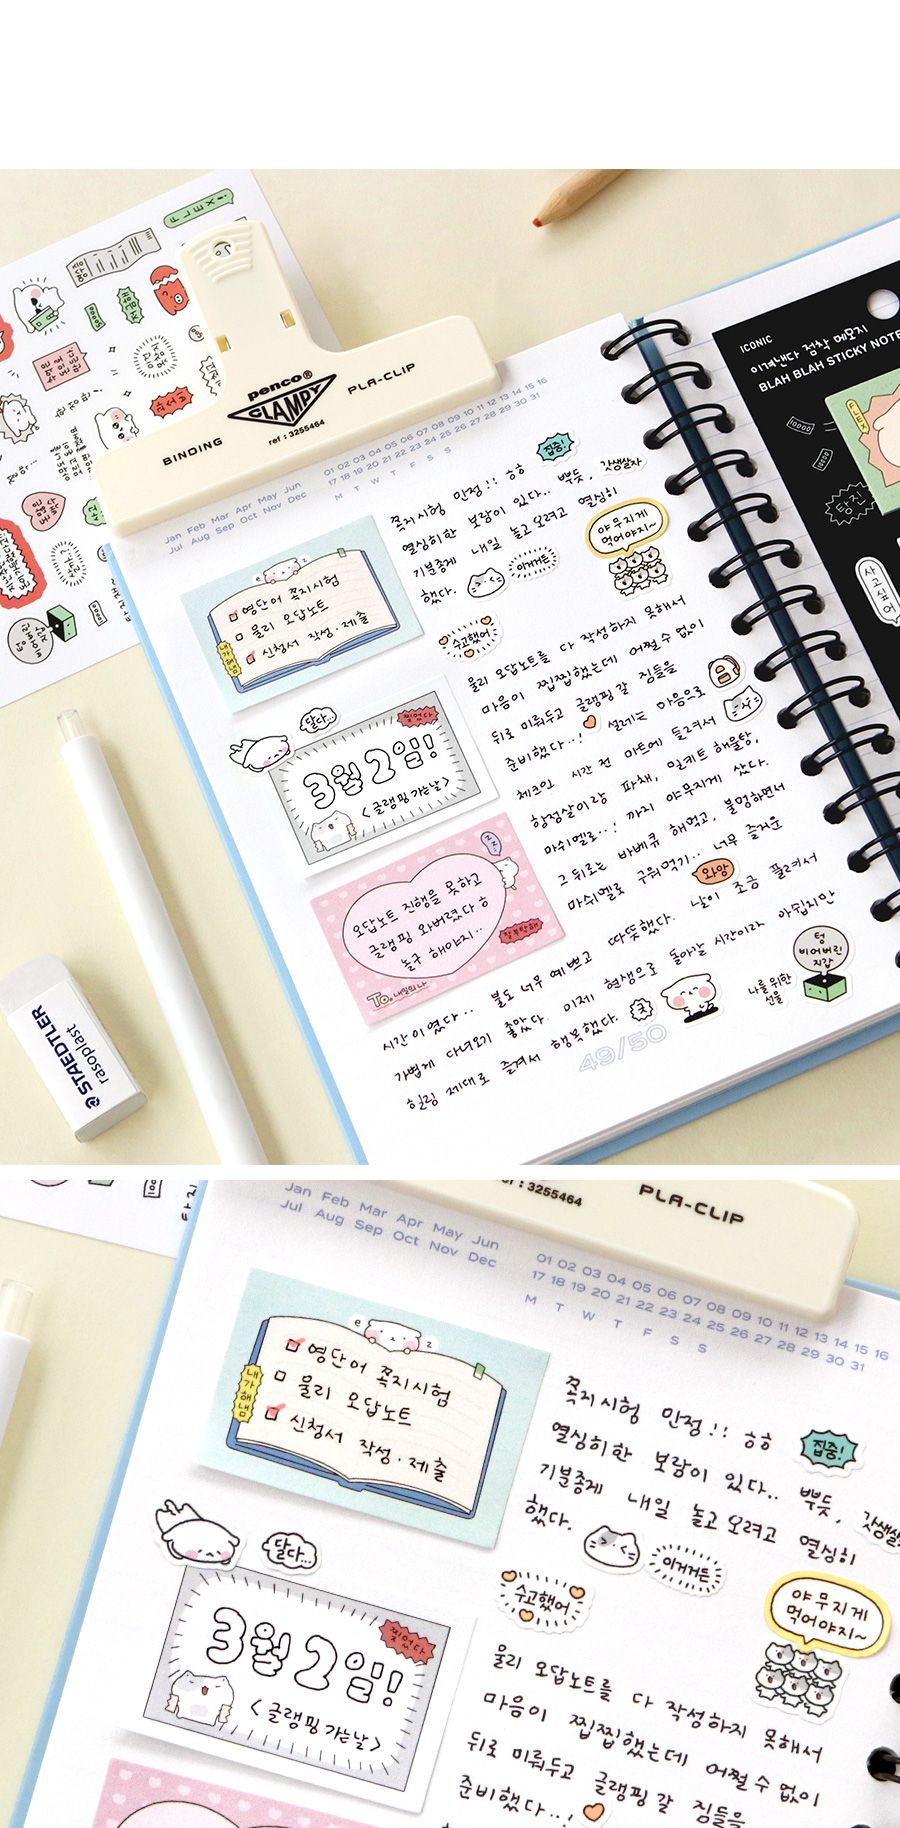 FLEX!
penco®
CLAMPY
BINDING
PLA-CLIP
ref : 3255464
Jan Feb Mar Apr May Jun
Jul Aug Sep Oct Nov Dec
01 02 03 04 05 06 07 08 09 10 11 12 13 14 15 16
17 18 19 20 21 22 23 24 25 26 27 28 29 30 31
M T W T F S S
ICONIC
이겨낸다 점착 메모지
BLAH BLAH STICKY NOTE
FLEX
10000
당진
사고싶어
영단어 쪽지시험
물리 오답노트
신청서 작성·제출
내가해냄
달다...
찢었다
3월 2일!
<글램핑 가는날>
zz..
오답노트 진행을 못하고
글램핑 와버렸다ㅎ
놀구 해야지..
잘부탁해
To. 내일의 나
쪽지시험 만점!! ㅎㅎ
집중!
열심히한 보람이 있다.. 뿌듯, 갓생살자
기분좋게 내일 놀고오려고 열심히
했다.
이거거든
야무지게
먹어야지~
수고했어
물리 오답노트를 다 작성하지 못해서
마음이 찝찝했는데 어쩔수없이
뒤로 미뤄두고 글램핑갈 짐들을
준비했다..! 설레는 마음으로
체크인 시간 전 마트에 들려서
항정살이랑 파채, 밀키트 해물탕,
마쉬멜로..! 까지 야무지게 샀다.
그 뒤로는 바베큐 해먹고, 불멍하면서
마쉬멜로 구워먹기.. 너무 즐거운
와앙
시간이였다.. 불도 너무 예쁘고 따뜻했다. 날이 조금 풀려서
가볍게 다녀오기 좋았다. 이제 현생으로 돌아갈 시간이라 아쉽지만
힐링 제대로 즐겨서 행복했다.
굿
나를위한
선물
텅
비어버린
지갑
49/50
STAEDTLER
rasoplast
ref : 3255464
PLA-CLIP
Jan Feb Mar Apr May Jun
Jul Aug Sep Oct Nov Dec
01 02 03 04 05 06 07 08 09 10 11 12 13 14 15 16
17 18 19 20 21 22 23 24 25 26 27 28 29 30 31
M T W T F S S
e z
영단어 쪽지시험
물리 오답노트
신청서 작성·제출
내가해냄
달다...
찢었다
3월 2일!
<글램핑 가는날>
쪽지시험 만점!! ㅎㅎ
집중!
열심히한 보람이 있다.. 뿌듯, 갓생살자
기분좋게 내일 놀고오려고 열심히
했다.
이거거든
수고했어
야무지게
먹어야지~
물리 오답노트를 다 작성하지 못해서
마음이 찝찝했는데 어쩔수없이
뒤로 미뤄두고 글램핑갈 짐들을
준비했다..!